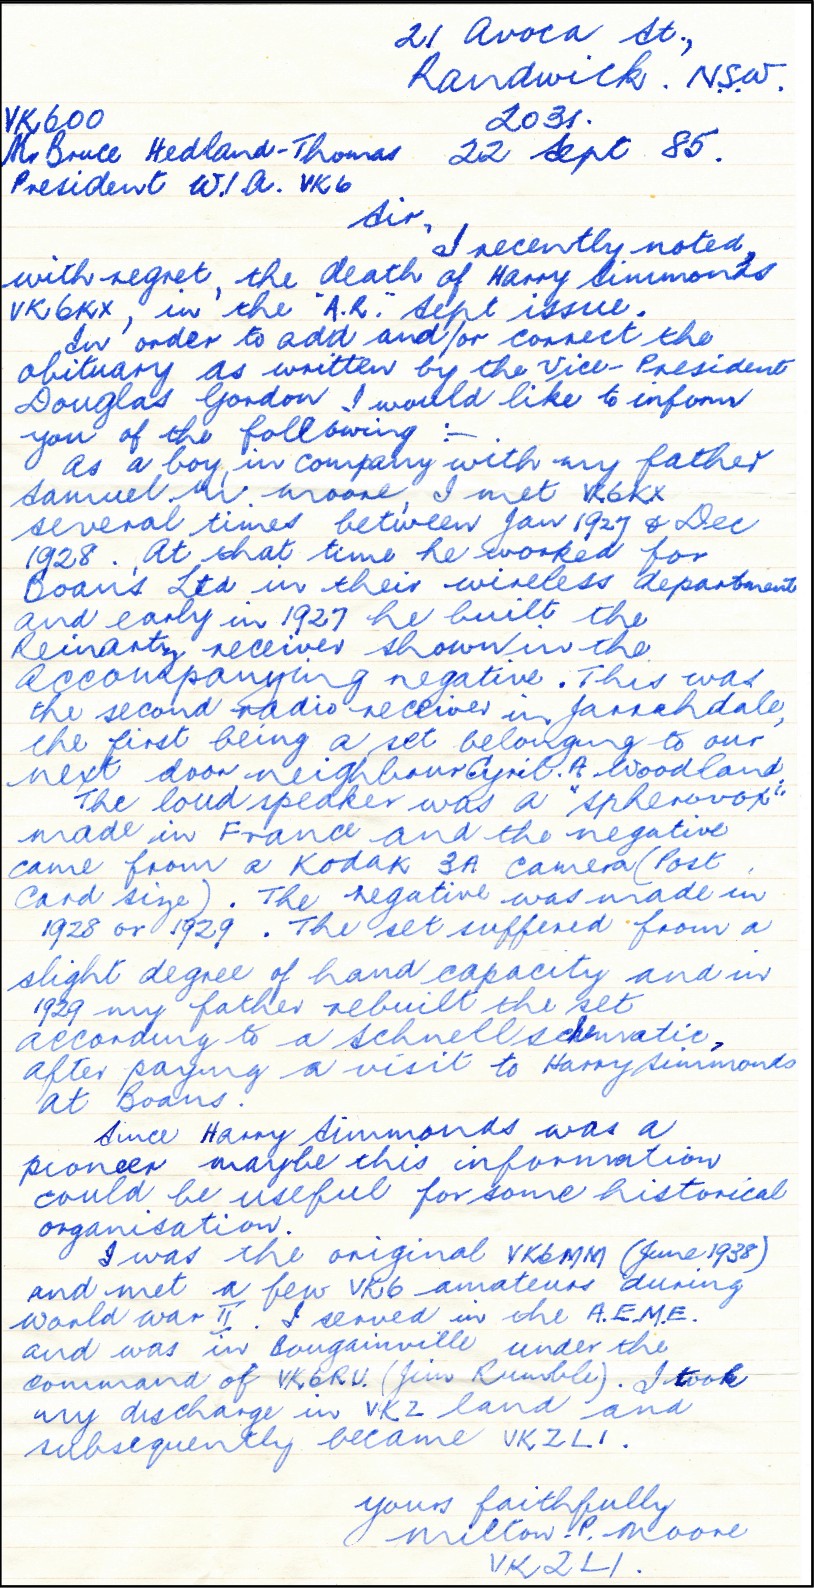 21 Avoca St.,
Randwick. N.S.W.
VK6OO 2031.
Mr Bruce Hedland-Thomas 22 Sept 85.
President W.I.A. VK6
Sir,
I recently noted,
with regret, the death of Harry Simmonds
VK6KX, in the "A.R." Sept issue.
In order to add and/or correct the
obituary as written by the Vice-President
Douglas Gordon I would like to inform
you of the following :-
As a boy, in company with my father
Samuel M. Moore, I met VK6KX
several times between Jan 1927 & Dec
1928. At that time he worked for
Boans Ltd in their wireless department
and early in 1927 he built the
Reinartz receiver shown in the
accompanying negative. This was
the second radio receiver in Jarrahdale,
the first being a set belonging to our
next door neighbour Cyril. A Woodland.
The loud speaker was a "Spherovox"
made in France and the negative
came from a Kodak 3A camera (Post
Card size). The negative was made in
1928 or 1929. The set suffered from a
slight degree of hand capacity and in
1929 my father rebuilt the set
according to a Schnell schematic,
after paying a visit to Harry Simmonds
at Boans.
Since Harry Simmonds was a
pioneer maybe this information
could be useful for some historical
organisation.
I was the original VK6MM (June 1938)
and met a few VK6 amateurs during
World War II. I served in the A.E.M.E.
and was in Bougainville under the
command of VK6RU. (Jim Rumble). I took
my discharge in VK2 land and
subsequently became VK2LI.
yours faithfully
Milton P. Moore
VK2LI.